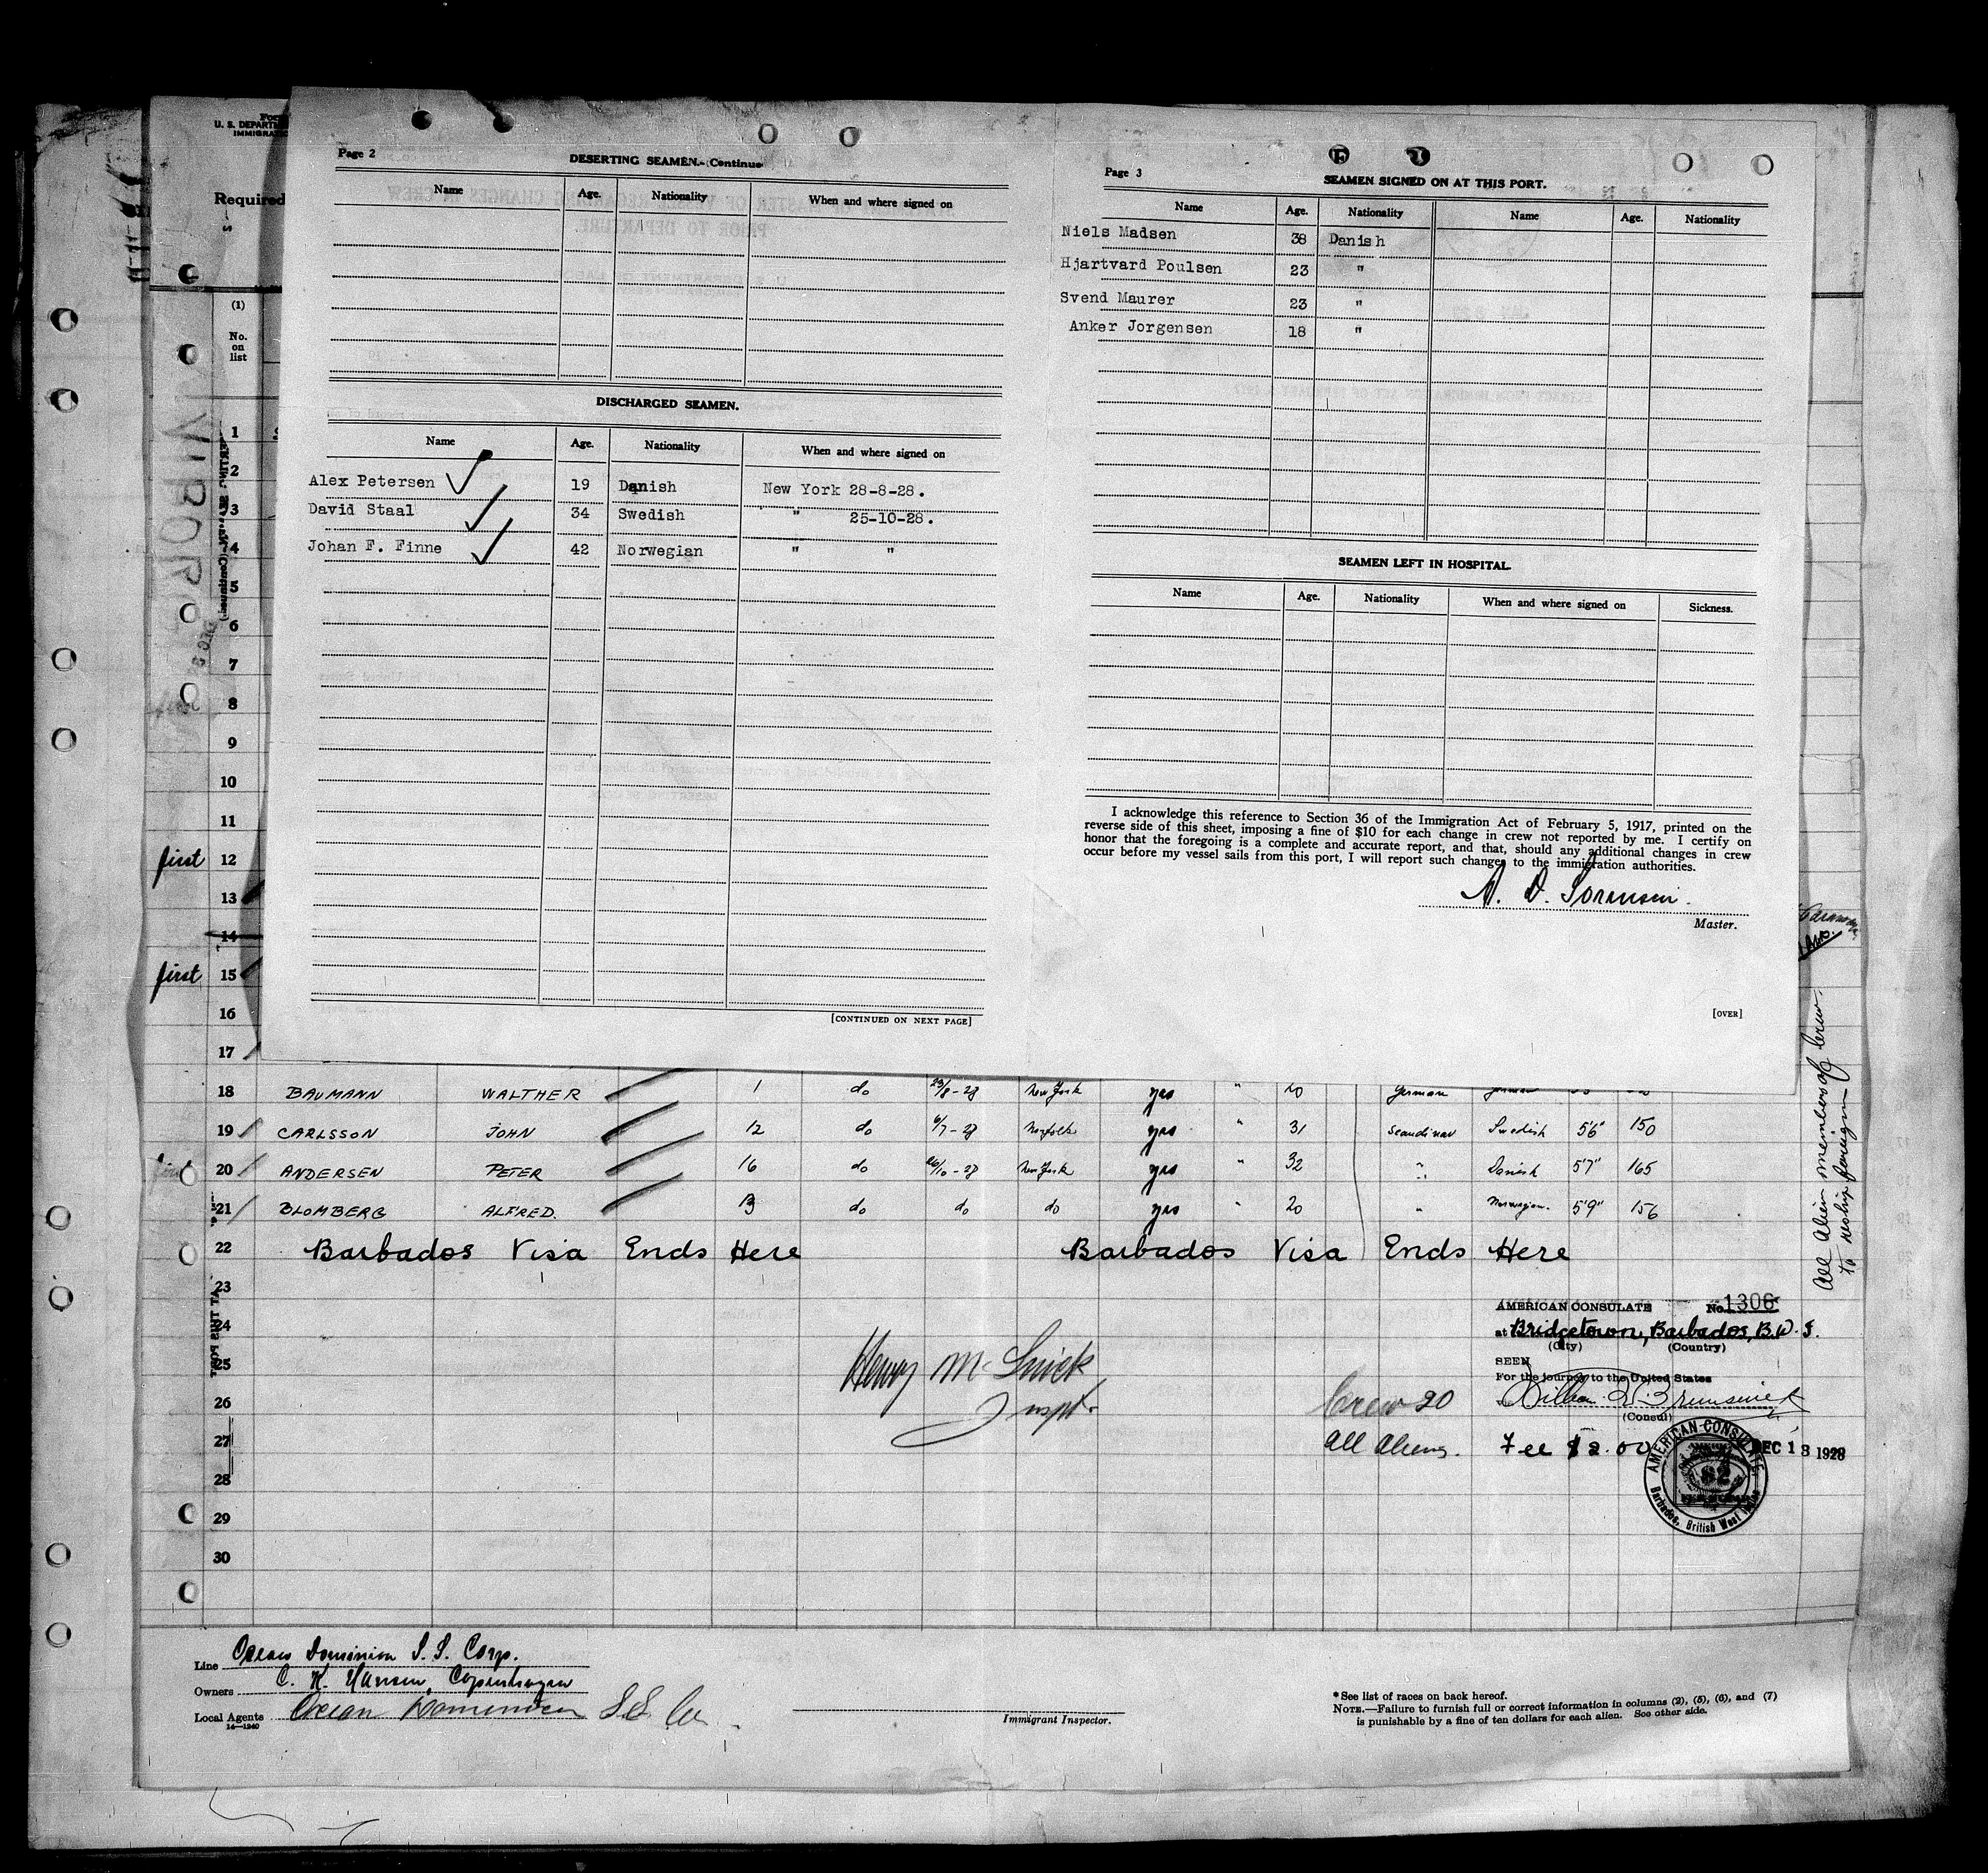 Form
U. S. DEPARTM
IMMIGRATIO
Required
(1)
No.
on
list
Page 2
DESERTING SEAMEN.-Continue
Name Age. Nationality When and where signed on
DISCHARGED SEAMEN.
Name Age. Nationality When and where signed on
Alex Petersen 19 Danish New York 28-8-28.
David Staal 34 Swedish " 25-10-28.
Johan F. Finne 42 Norwegian " "
[CONTINUED ON NEXT PAGE]
Page 3
SEAMEN SIGNED ON AT THIS PORT.
Name Age. Nationality Name Age. Nationality
Niels Madsen 38 Danish
Hjartvard Poulsen 23 "
Svend Maurer 23 "
Anker Jorgensen 18 "
SEAMEN LEFT IN HOSPITAL.
Name Age. Nationality When and where signed on Sickness.
I acknowledge this reference to Section 36 of the Immigration Act of February 5, 1917, printed on the
reverse side of this sheet, imposing a fine of $10 for each change in crew not reported by me. I certify on
honor that the foregoing is a complete and accurate report, and that, should any additional changes in crew
occur before my vessel sails from this port, I will report such changes to the immigration authorities.
A. D. Sorensen.
Master.
[OVER]
1
2
3
4
5
6
7
8
9
10
11
first 12
13
14
first 15
16
17
18 BAUMANN WALTHER 1 do 29/8-28 New York yes " 20 German German
19 CARLSSON JOHN 12 do 9/7-28 Norfolk yes " 31 Scandinav Swedish 5'6" 150
20 ANDERSEN PETER 16 do 26/10-28 New York yes " 32 " Danish 5'7" 165
21 BLOMBERG ALFRED. 13 do do do yes " 20 " Norwegian. 5'9" 156
22 Barbados Visa Ends Here Barbados Visa Ends Here
23
24
25
26
27
28
29
30
All Alien members of Crew.
to reship foreign
AMERICAN CONSULATE No. 1306
at Bridgetown, Barbados, B.W.I.
(City) (Country)
SEEN
For the journey to the United States
William W. Brunswick
(Consul)
Fee $2.00 DEC 13 1928
AMERICAN CONSULATE,
82
Barbados, British West Indies
Henry McSnick
Inspt.
Crew 20
All Aliens.
Line Ocean Dominion S.S. Corp.
Owners C. K. Hansen, Copenhagen
Local Agents Ocean Dominion S.S. Co.
14-1240
Immigrant Inspector.
*See list of races on back hereof.
NOTE.—Failure to furnish full or correct information in columns (2), (5), (6), and (7)
is punishable by a fine of ten dollars for each alien. See other side.